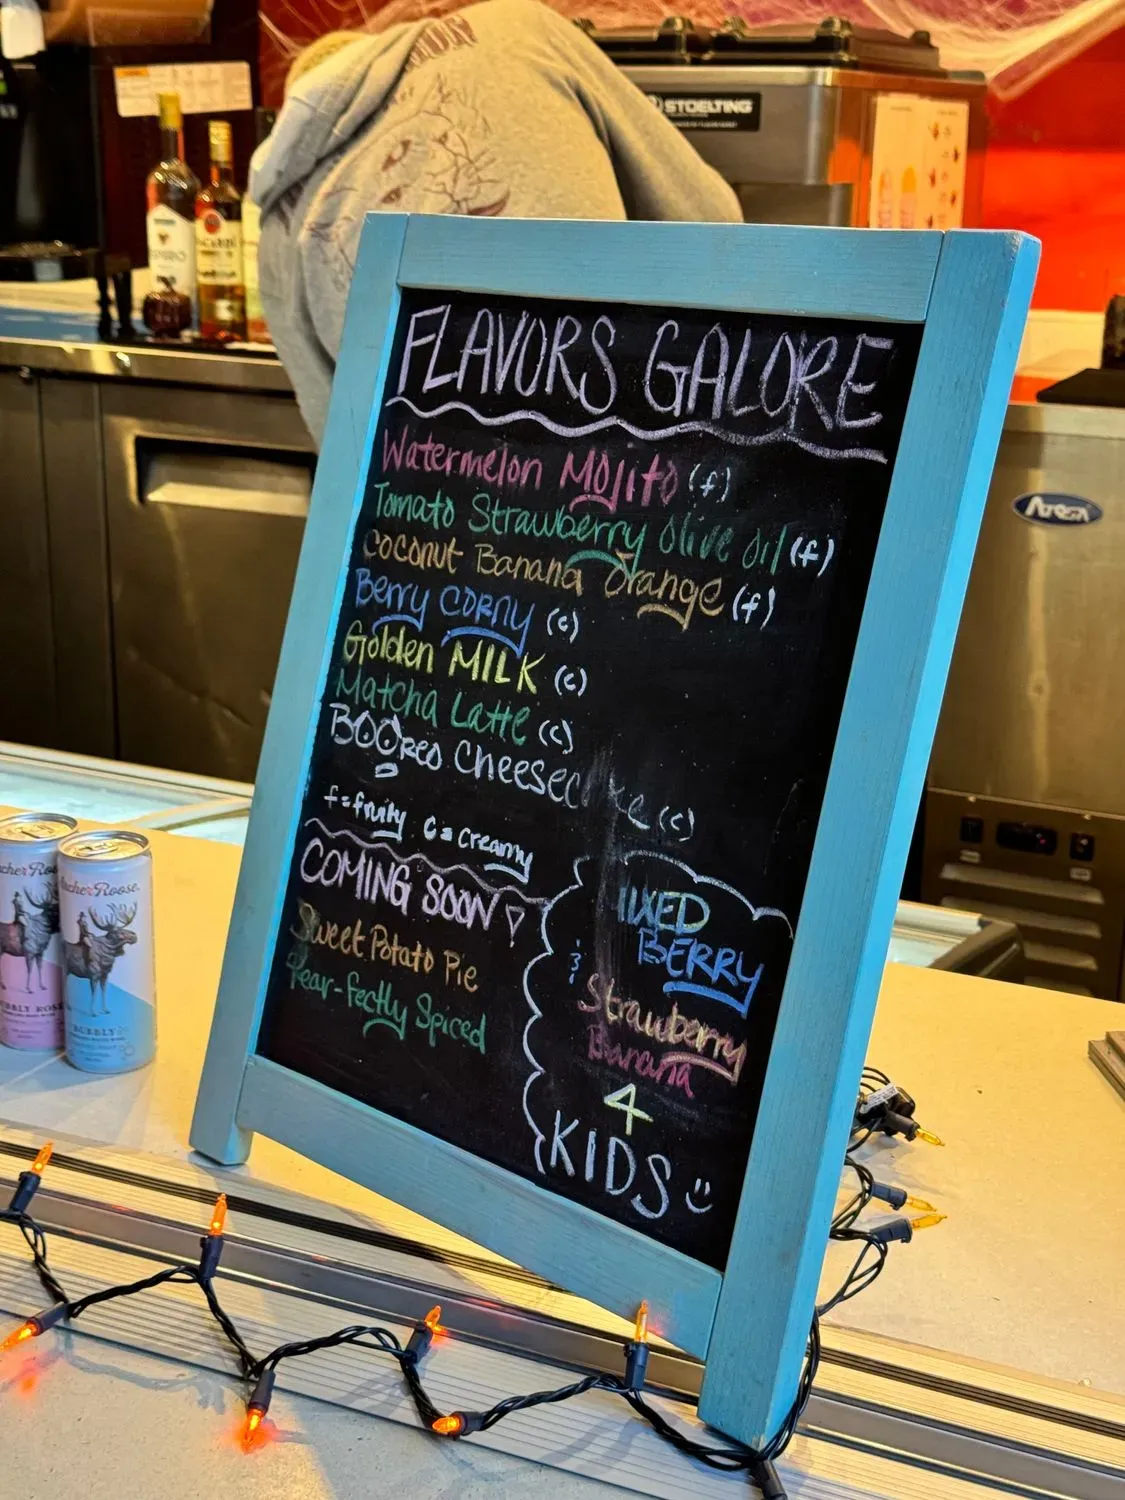 STOELTING
BACARDI
FLAVORS GALORE
Watermelon Mojito (f)
Tomato Strawberry Olive Oil (f)
Coconut Banana Orange (f)
Berry CORNY (c)
Golden MILK (c)
Matcha Latte (c)
BOOreo Cheesecake (c)
f = fruity c = creamy
COMING SOON
Sweet Potato Pie
Pear-fectly Spiced
MIXED
BERRY
&
Strawberry
Banana
4
KIDS
Atosa
Archer Roose.
BUBBLY ROSÉ
Archer Roose.
BUBBLY